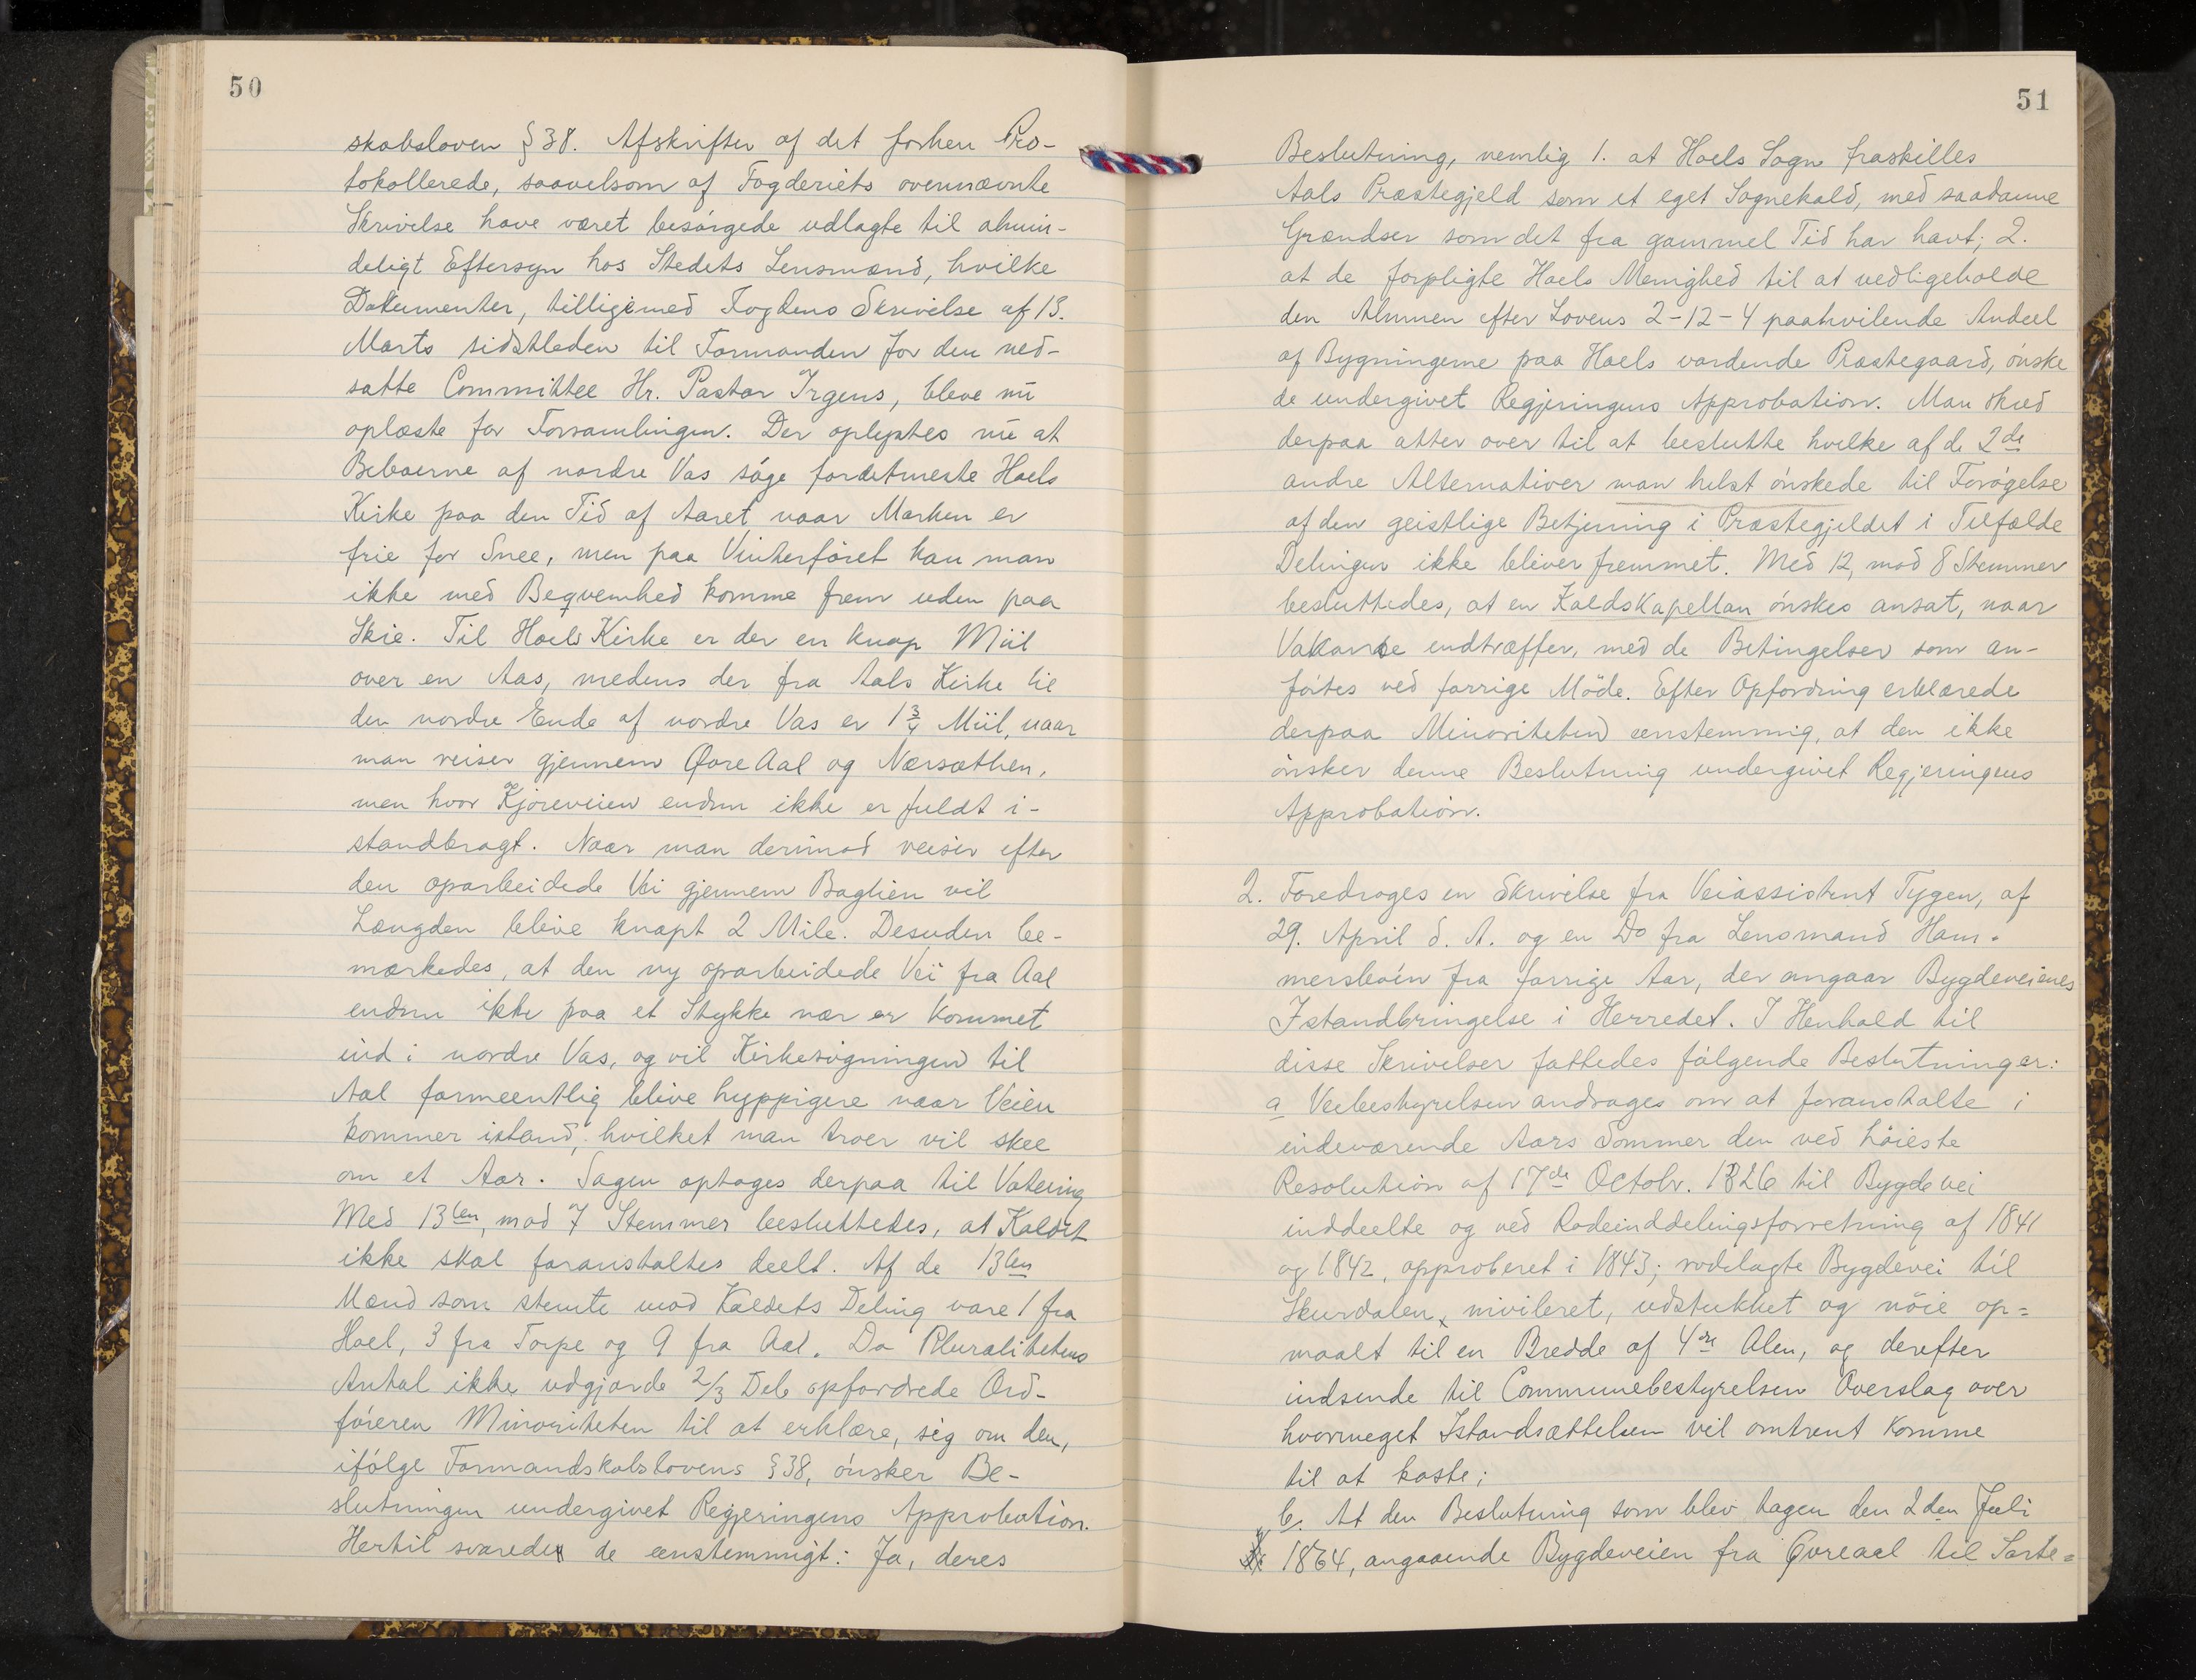 50
skabsloven § 38. Afskrifter af det forhen Pro-
tokollerede, saavelsom af Fogderiets ovennævnte
Skrivelse have været besörgede udlagte til almin-
deligt Eftersyn hos Stedets Lensmand, hvilke
Dokumenter, tilligemed Fogdens Skrivelse af 13.
Marts sidstleden til Formanden for den ned-
satte Committee Hr. Pastor Irgens, bleve nu
oplæste for Forsamlingen. Der oplystes nu at
Beboerne af nordre Vas söge fordetmeste Hoels
Kirke paa den Tid af Aaret naar Marken er
frie for Snee, men paa Vinterföret kan man
ikke med Beqvemhed komme frem uden paa
Skie. Til Hoels Kirke er der en knap Miil
over en Aas, medens der fra Aals Kirke til
den nordre Ende af nordre Vas er 1 3/4 Miil, naar
man reiser gjennem Øvre Aal og Nærsathen,
men hvor Kjöreveien endnu ikke er fuldt i-
standbragt. Naar man derimod reiser efter
den oparbeidede Vei gjennem Baglien vil
Længden blive knapt 2 Mile. Desuden be-
mærkedes, at den ny oparbeidede Vei fra Aal
endnu ikke paa et Stykke nær er kommet
ind i nordre Vas, og vil Kirkesögningen til
Aal formeentlig blive hyppigere naar Veien
kommer istand, hvilket man troer vil skee
om et Aar. Sagen optoges derpaa til Votering
Med 13ten, mod 7 Stemmer besluttedes, at Kaldet
ikke skal foranstaltes deelt. Af de 13ten
Mænd som stemte mod Kaldets Deling vare 1 fra
Hoel, 3 fra Torpe og 9 fra Aal. Da Pluralitetens
Antal ikke udgjorde 2/3 Dele opfordrede Ord-
föreren Minoriteten til at erklære, sig om den,
ifölge Formandskabslovens § 38, önsker Be-
slutningen undergivet Regjeringens Approbation.
Hertil svarede de eenstemmigt: Ja, deres
51
Beslutning, nemlig 1. at Hoels Sogn fraskilles
Aals Præstegjeld som et eget Sognekald, med saadanne
Grændser som det fra gammel Tid har havt; 2.
at de forpligte Hoels Menighed til at vedligeholde
den Almuen efter Lovens 2-12-4 paahvilende Andeel
af Bygningerne paa Hoels vordende Præstegaard, önske
de undergivet Regjeringens Approbation. Man skred
derpaa atter over til at beslutte hvilke af de 2de
andre Alternativer man helst önskede til Forögelse
af den geistlige Betjening i Præstegjeldet i Tilfælde
Delingen ikke bliver fremmet. Med 12, mod 8 Stemmer
besluttedes, at en Kaldskapellan önskes ansat, naar
Vakance indtræffer, med de Betingelser som an-
förtes ved forrige Möde. Efter Opfordring erklærede
derpaa Minoriteten eenstemmig, at den ikke
önsker denne Beslutning undergivet Regjeringens
Approbation.
2. Foredroges en Skrivelse fra Veiassistent Tygen, af
29. April d. A. og en Do fra Lensmand Ham-
mersboen fra forrige Aar, der angaar Bygdeveienes
Istandbringelse i Herredet. I Henhold til
disse Skrivelser fattedes fölgende Beslutninger:
a Veibestyrelsen andrages om at foranstalte i
indeværende Aars Sommer den ved höieste
Resolution af 17de Octobr. 1826 til Bygdevei
inddeelte og ved Rodeinddelingsforretning af 1841
og 1842, approberet i 1843; rodelagte Bygdevei til
Skurdalen, nivileret, udstukket og nöie op=
maalt til en Bredde af 4re Alen, og derefter
indsende til Communebestyrelsen Overslag over
hvormeget Istandsættelsen vil omtrent komme
til at koste;
b. At den Beslutning som blev tagen den 2den Juli
1864, angaaende Bygdeveien fra Øvreaal til Sorte=